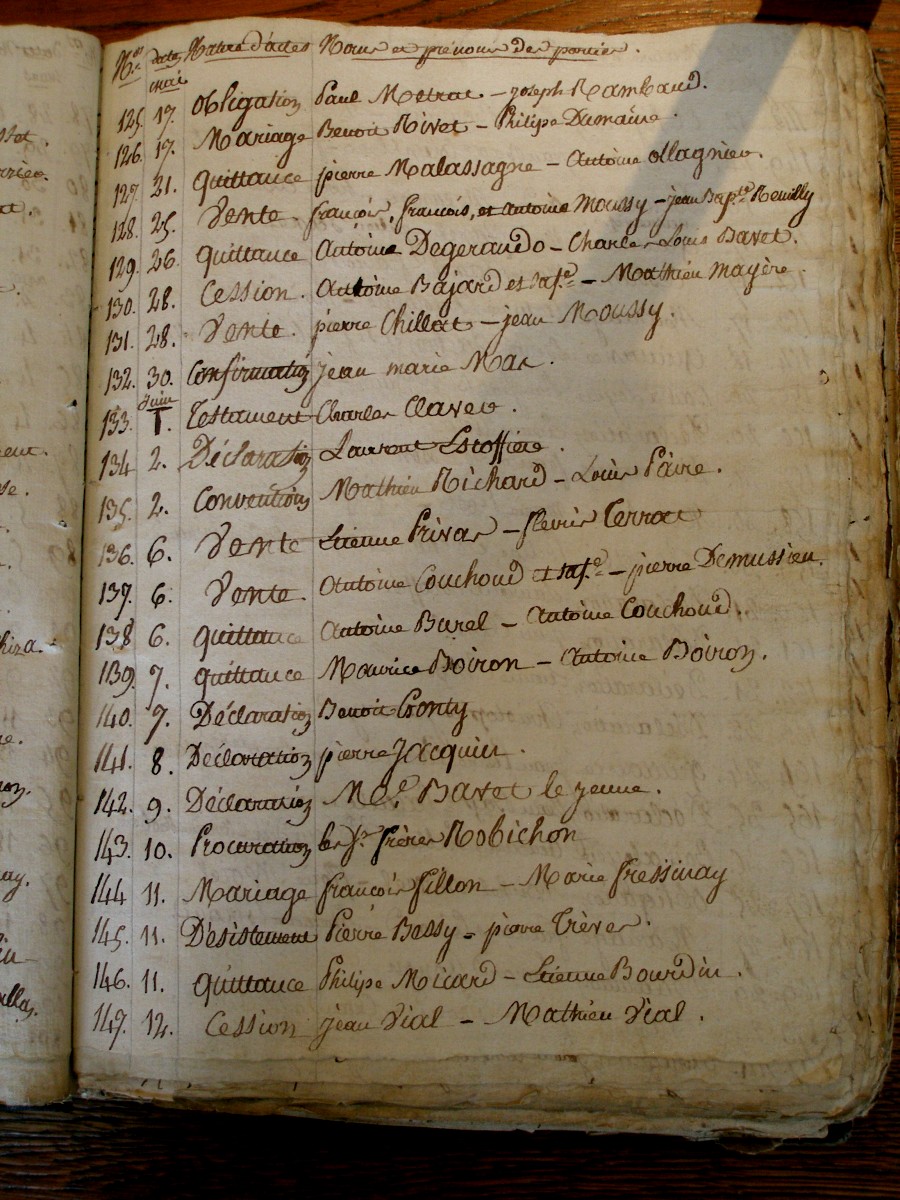 Nos dates Nature d'actes Noms et prénoms des parties.
mai
125. 17. Obligation Paul Metrat - Joseph Rambaud.
126. 17. Mariage Benoit Rivet - Philipe Dumaine.
127. 21. Quittance pierre Malassagne - Antoine Ollagnier.
128. 25. Vente. françois, françois, et Antoine Moussy - jean Bapte Reuilly
129. 26. Quittance Antoine Degeraudo - Charles Louis Bavet.
130. 28. Cession. Antoine Bajard et sa fe - Mathieu Mayère.
131. 28. Vente. pierre Chillat - jean Moussy.
132. 30. Confirmation jean marie Mas.
juin
133. 1. Testament Charles Claver.
134. 2. Déclaration Laurent Escoffière.
135. 2. Conventions Mathieu Richard - Louis Faure.
136. 6. Vente Etienne Privas - fleuris Terrat
137. 6. Vente. Antoine Couchoud et sa fe - pierre Demussieu.
138. 6. Quittance Antoine Burel - Antoine Couchoud.
139. 7. Quittance Maurice Boiron - Antoine Boiron.
140. 7. Déclaration Benoit Cronty
141. 8. Déclaration pierre Jacquin.
142. 9. Déclaration Me. Bavet le jeune.
143. 10. Procuration les Srs frères Robichon
144. 11. Mariage françois fillon - Marie fressinay
145. 11. Désistement Pierre Bessy - pierre Trèves.
146. 11. Quittance Philipe Micard - Etienne Bourdin.
147. 12. Cession jean Vial - Mathieu Vial.